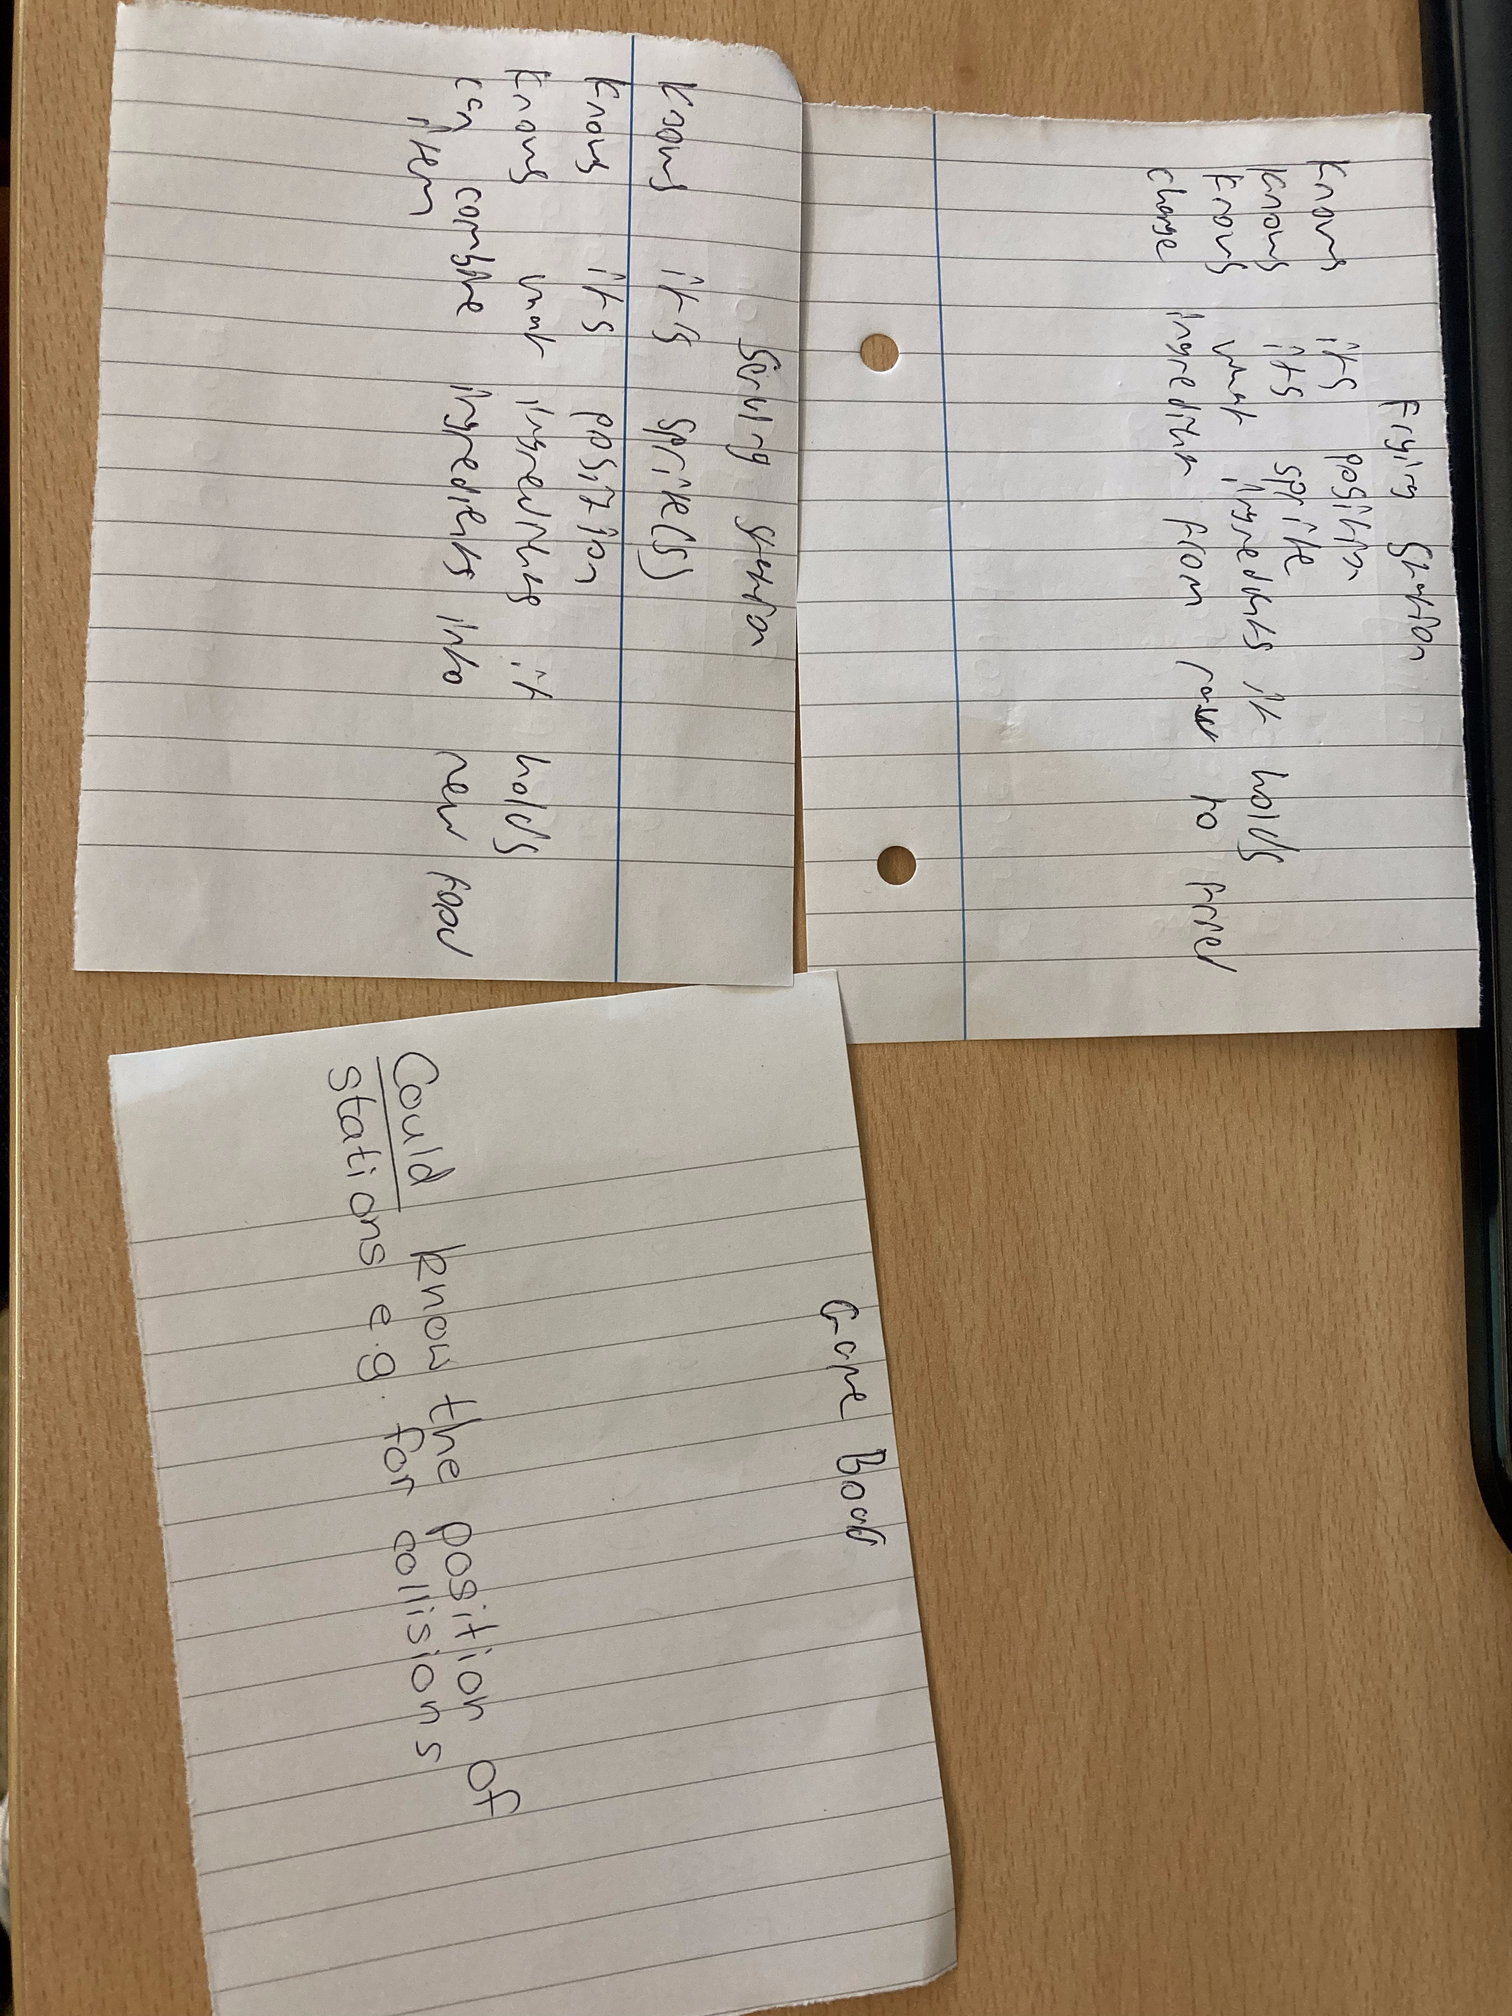 Frying station
knows its position
knows its sprite
knows what ingredients it holds
change ingredient from raw to fried
Serving station
knows it's sprite(s)
knows its position
knows what ingredients it holds
can combine ingredients into new food
item
Game Board
Could know the position of
stations e.g. for collisions